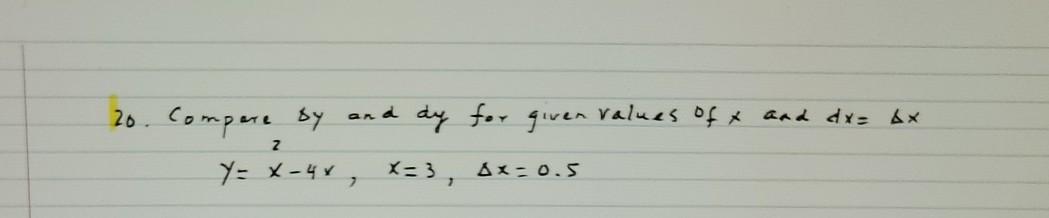 20. Compare Δy and dy for given values of x and dx= Δx
y= x²-4x, x=3, Δx=0.5